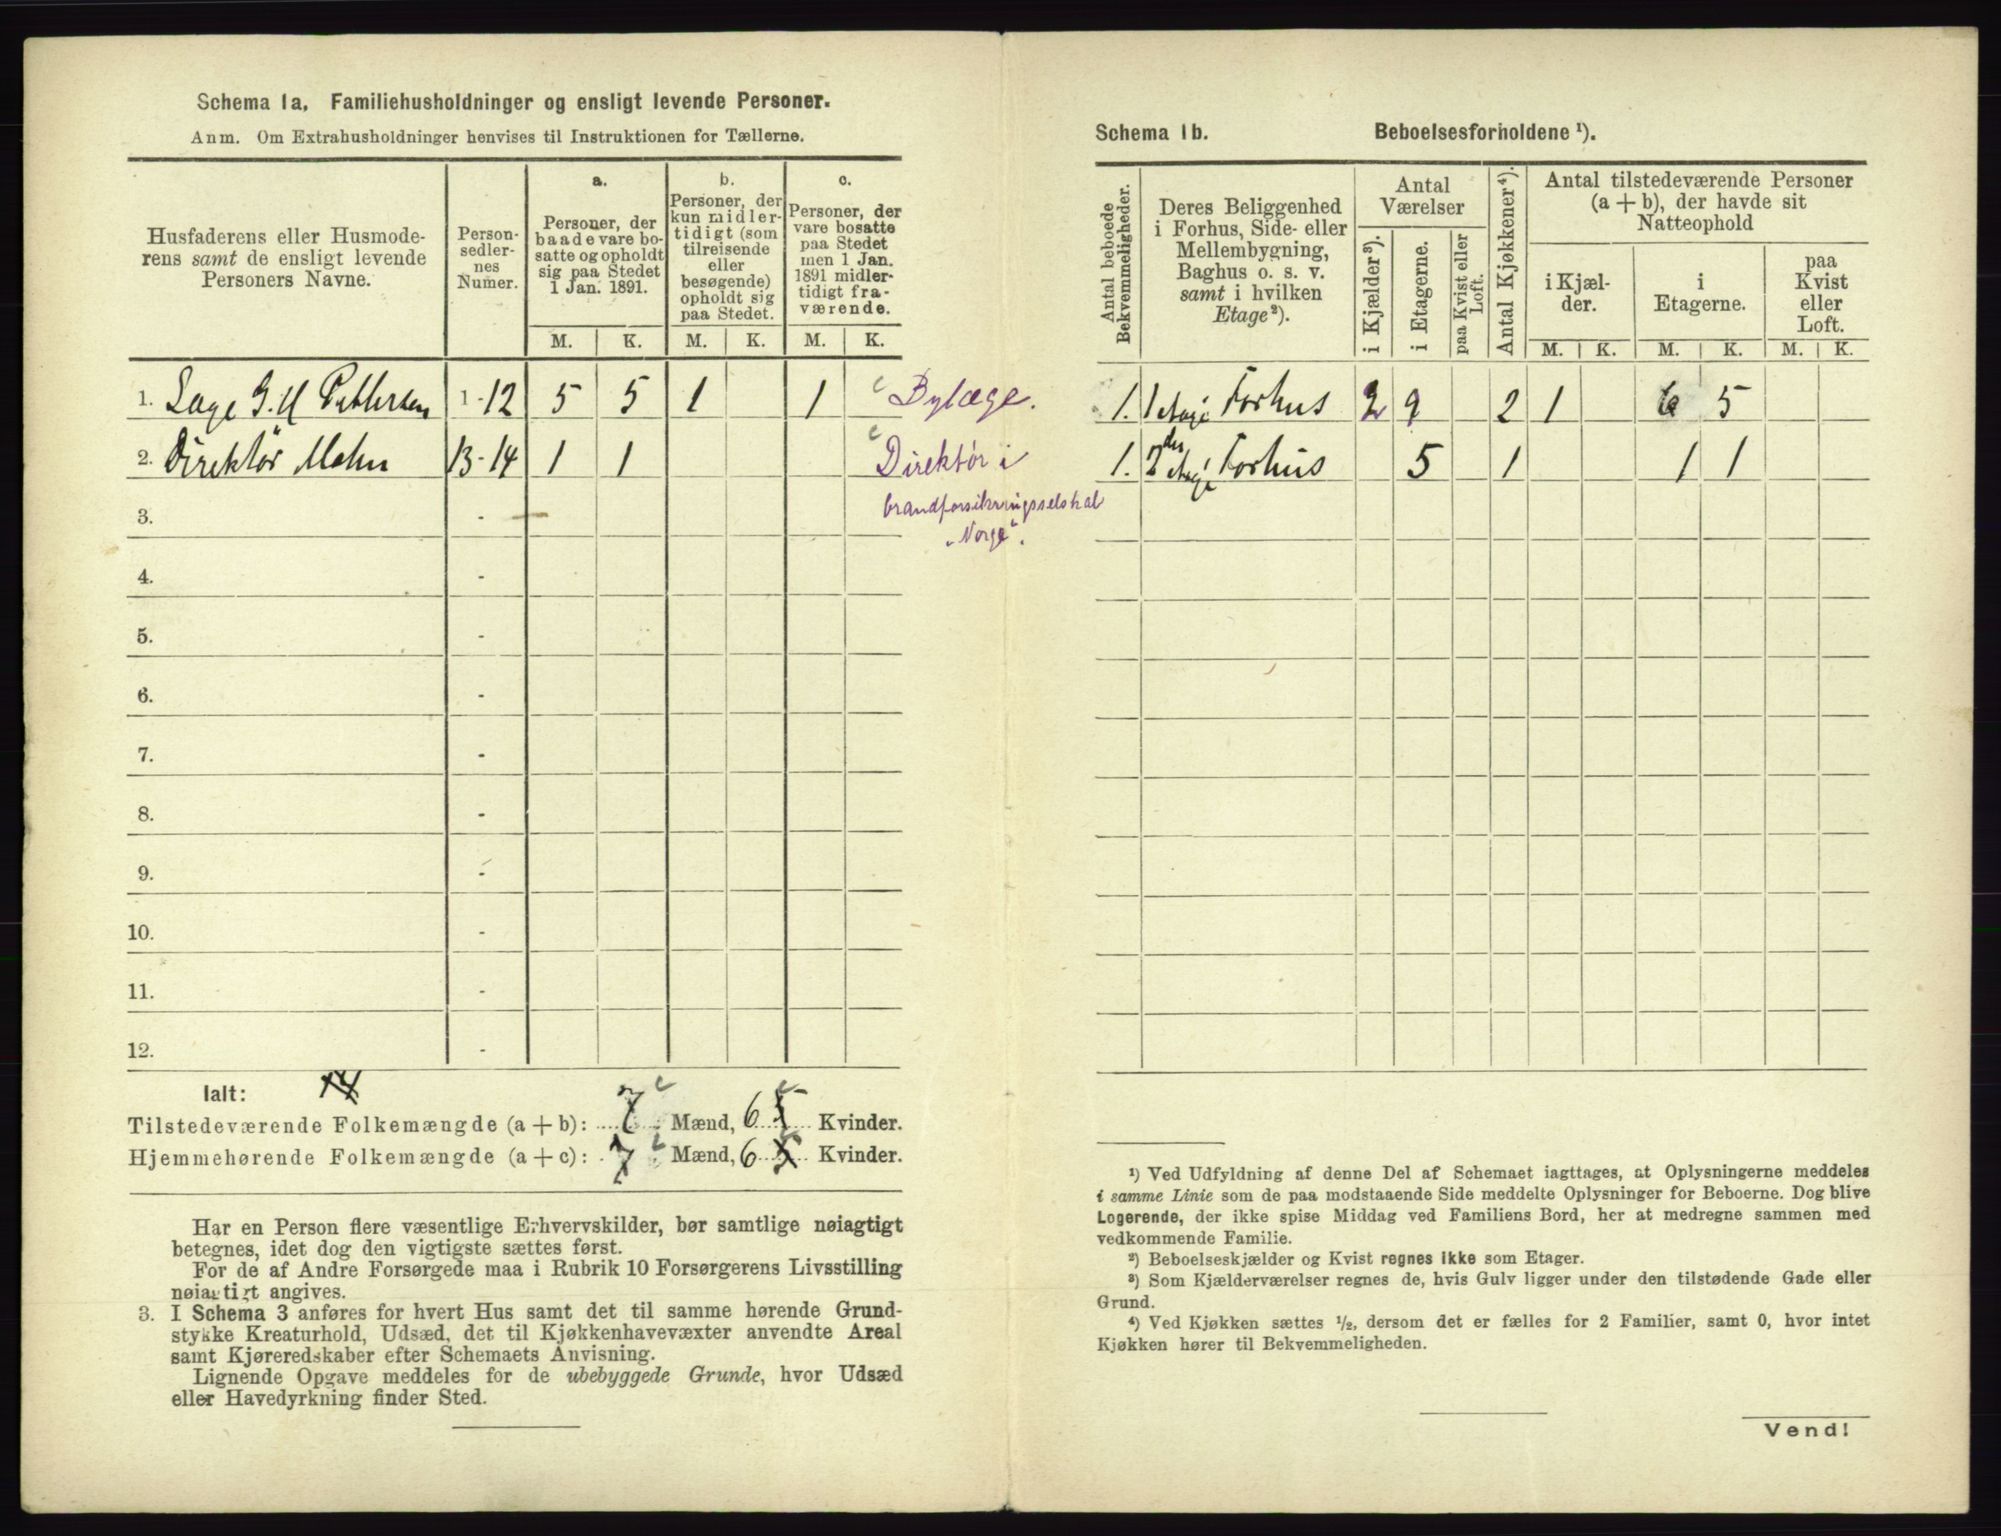 Schema 1a. Familiehusholdninger og ensligt levende Personer.
Anm. Om Extrahusholdninger henvises til Instruktionen for Tællerne.
Husfaderens eller Husmode-
rens samt de ensligt levende
Personers Navne.
Person-
sedler-
nes
Numer.
a.
Personer, der
baade vare bo-
satte og opholdt
sig paa Stedet
1 Jan. 1891.
b.
Personer, der
kun midler-
tidigt (som
tilreisende
eller
besøgende)
opholdt sig
paa Stedet.
c.
Personer, der
vare bosatte
paa Stedet
men 1 Jan.
1891 midler-
tidigt fra-
værende.
M. K. M. K. M. K.
1. G. M Pettersen 1-12 5 5 1 1 Bylæge.
2. Direktør Mohn 13-14 1 1 Direktør i
brandforsikringsselskab
"Norge".
3. -
4. -
5. -
6. -
7. -
8. -
9. -
10. -
11. -
12. -
Ialt: 14
Tilstedeværende Folkemængde (a + b): 7 Mænd, 6 5 Kvinder.
Hjemmehørende Folkemængde (a + c): 7 Mænd, 6 5 Kvinder.
Har en Person flere væsentlige Erhvervskilder, bør samtlige nøiagtigt
betegnes, idet dog den vigtigste sættes først.
For de af Andre Forsørgede maa i Rubrik 10 Forsørgerens Livsstilling
nøiagtigt angives.
3. I Schema 3 anføres for hvert Hus samt det til samme hørende Grund-
stykke Kreaturhold, Udsæd, det til Kjøkkenhavevæxter anvendte Areal
samt Kjøreredskaber efter Schemaets Anvisning.
Lignende Opgave meddeles for de ubebyggede Grunde, hvor Udsæd
eller Havedyrkning finder Sted.
Schema 1b. Beboelsesforholdene ¹).
Antal beboede
Bekvemmeligheder.
Deres Beliggenhed
i Forhus, Side- eller
Mellembygning,
Baghus o. s. v.
samt i hvilken
Etage ²).
Antal
Værelser
i Kjælder ³).
i Etagerne.
paa Kvist eller
Loft.
Antal Kjøkkener ⁴).
Antal tilstedeværende Personer
(a + b), der havde sit
Natteophold
i Kjæl-
der.
i
Etagerne.
paa
Kvist
eller
Loft.
M. K. M. K. M. K.
1. 1 etage Forhus 2 9 2 1 6 5
1. 2den etage Forhus 5 1 1 1
¹) Ved Udfyldning af denne Del af Schemaet iagttages, at Oplysningerne meddeles
i samme Linie som de paa modstaaende Side meddelte Oplysninger for Beboerne. Dog blive
Logerende, der ikke spise Middag ved Familiens Bord, her at medregne sammen med
vedkommende Familie.
²) Beboelseskjælder og Kvist regnes ikke som Etager.
³) Som Kjælderværelser regnes de, hvis Gulv ligger under den tilstødende Gade eller
Grund.
⁴) Ved Kjøkken sættes ½, dersom det er fælles for 2 Familier, samt 0, hvor intet
Kjøkken hører til Bekvemmeligheden.
Vend!